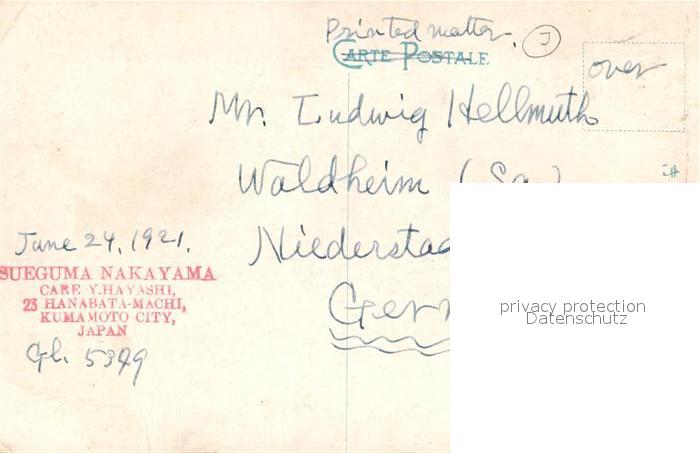 Printed matter.
J
CARTE POSTALE
over
Mr. Ludwig Hellmuth
Waldheim (Sa.)
June 24, 1921.
Niederstad
SUEGUMA NAKAYAMA
CARE Y.HAYASHI,
23 HANABATA-MACHI,
KUMAMOTO CITY,
JAPAN
Germ
Gl. 5349
privacy protection
Datenschutz